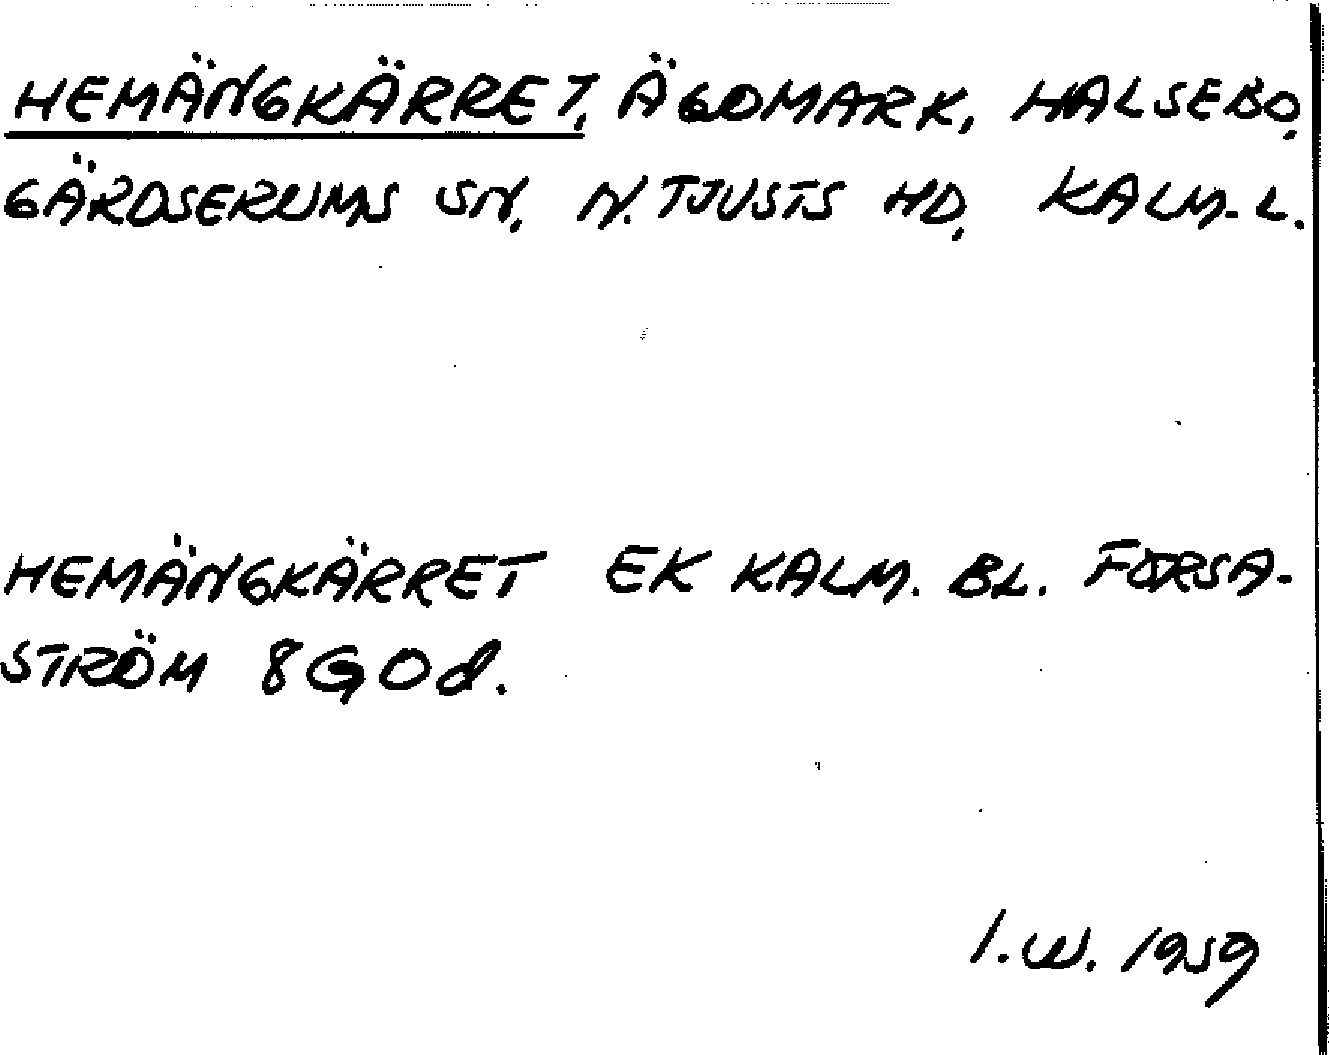 HEMÄNGKÄRRET, ÄGOMARK, HALSEBO,
GÄRDSERUMS SN, N. TJUSTS HD, KALM. L.
HEMÄNGKÄRRET EK KALM. BL. FORSA-
STRÖM 8G0d.
I.W. 1959